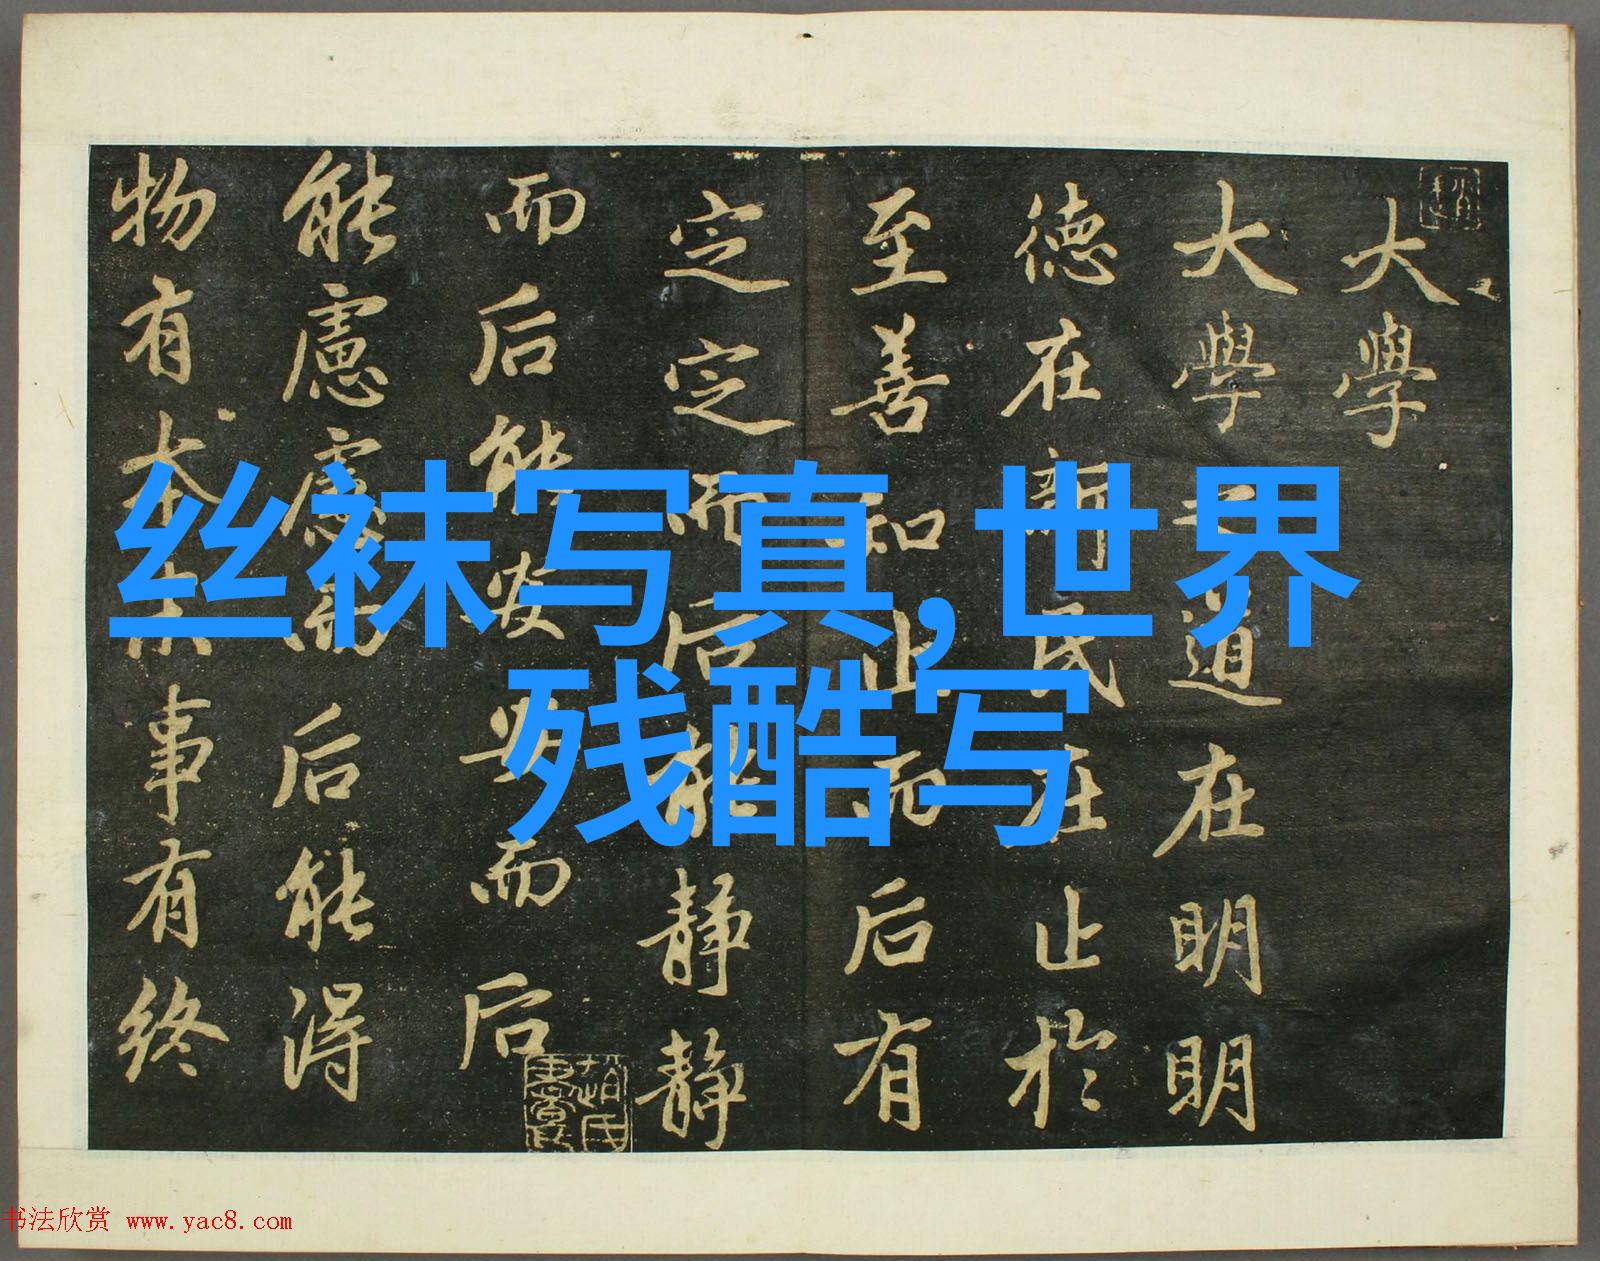 大學
大學之道在明明
德在新民在止於
至善知止而后有
定定而后能静静
而后能安安而后
能慮慮而后能得
物有本末事有終
丝袜写真,世界
残酷写
书法欣赏 www.yac8.com